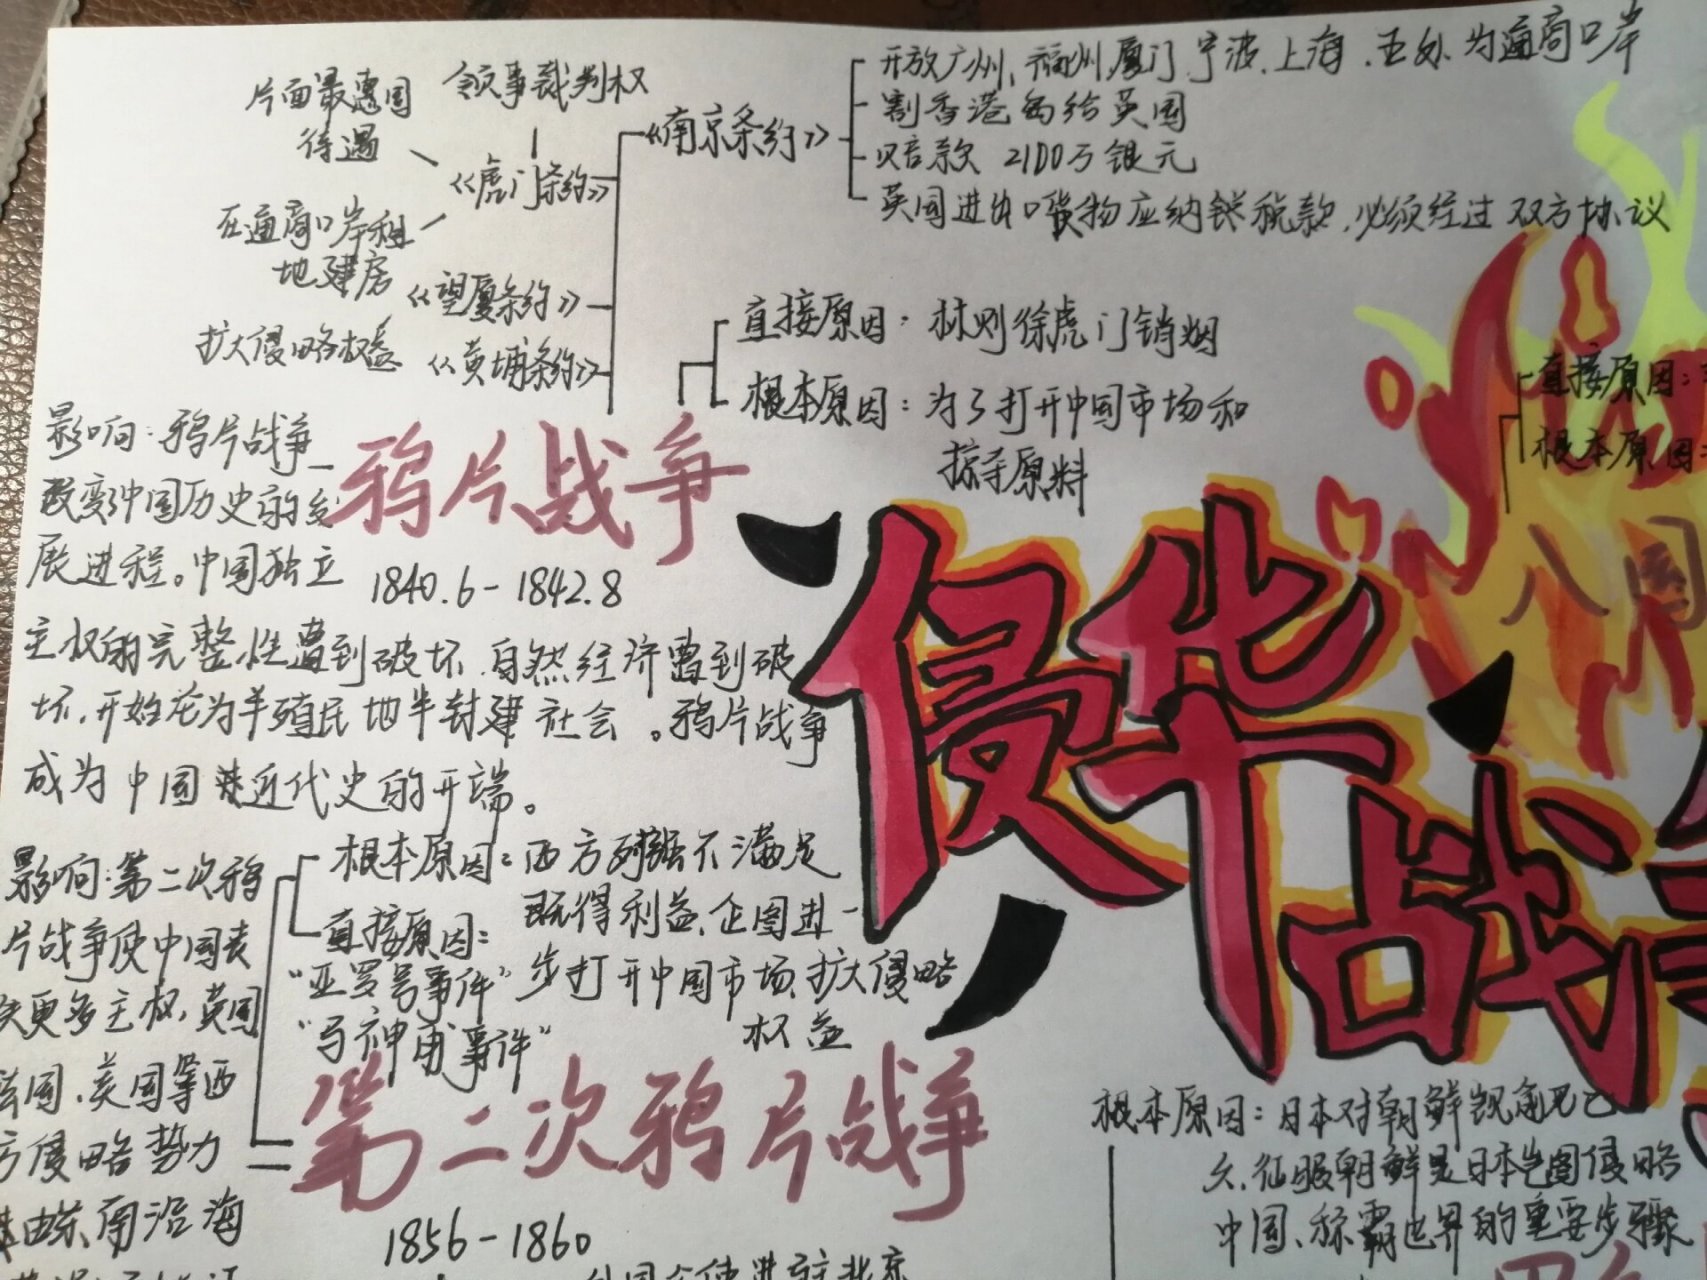 片面最惠国
待遇
领事裁判权
《虎门条约》
在通商口岸租
地建房
《望厦条约》
扩大侵略权益
《黄埔条约》
《南京条约》
开放广州、福州、厦门、宁波、上海、五处为通商口岸
割香港岛给英国
赔款 2100万银元
英国进出口货物应纳税款,必须经过双方协议
直接原因:林则徐虎门销烟
根本原因:为了打开中国市场和
掠夺原料
鸦片战争
1840.6-1842.8
影响:鸦片战争
改变中国历史的发
展进程。中国独立
主权的完整性遭到破坏,自然经济遭到破
坏,开始沦为半殖民地半封建社会。鸦片战争
成为中国近代史的开端。
直接原因:
根本原因:
八国
侵华战争
根本原因:西方列强不满足
既得利益,企图进一
步打开中国市场,扩大侵略
权益
直接原因:
“亚罗号事件”
“马神甫事件”
影响:第二次鸦
片战争使中国丧
失更多主权,英国
法国、美国等西
方侵略势力
由东南沿海
第二次鸦片战争
1856-1860
外国公使进驻北京
根本原因:日本对朝鲜觊觎已
久,征服朝鲜是日本企图侵略
中国、称霸世界的重要步骤